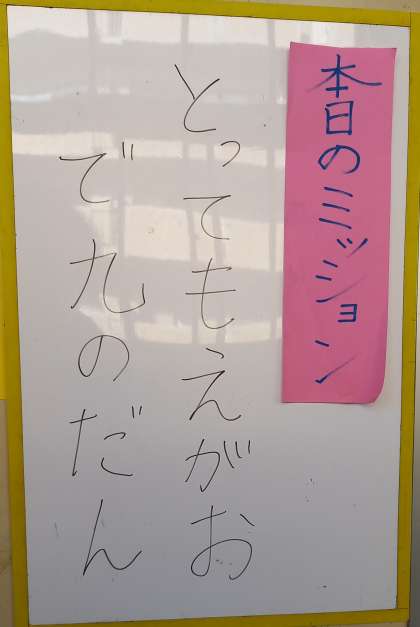 本日のミッション
とってもえがお
で九のだん